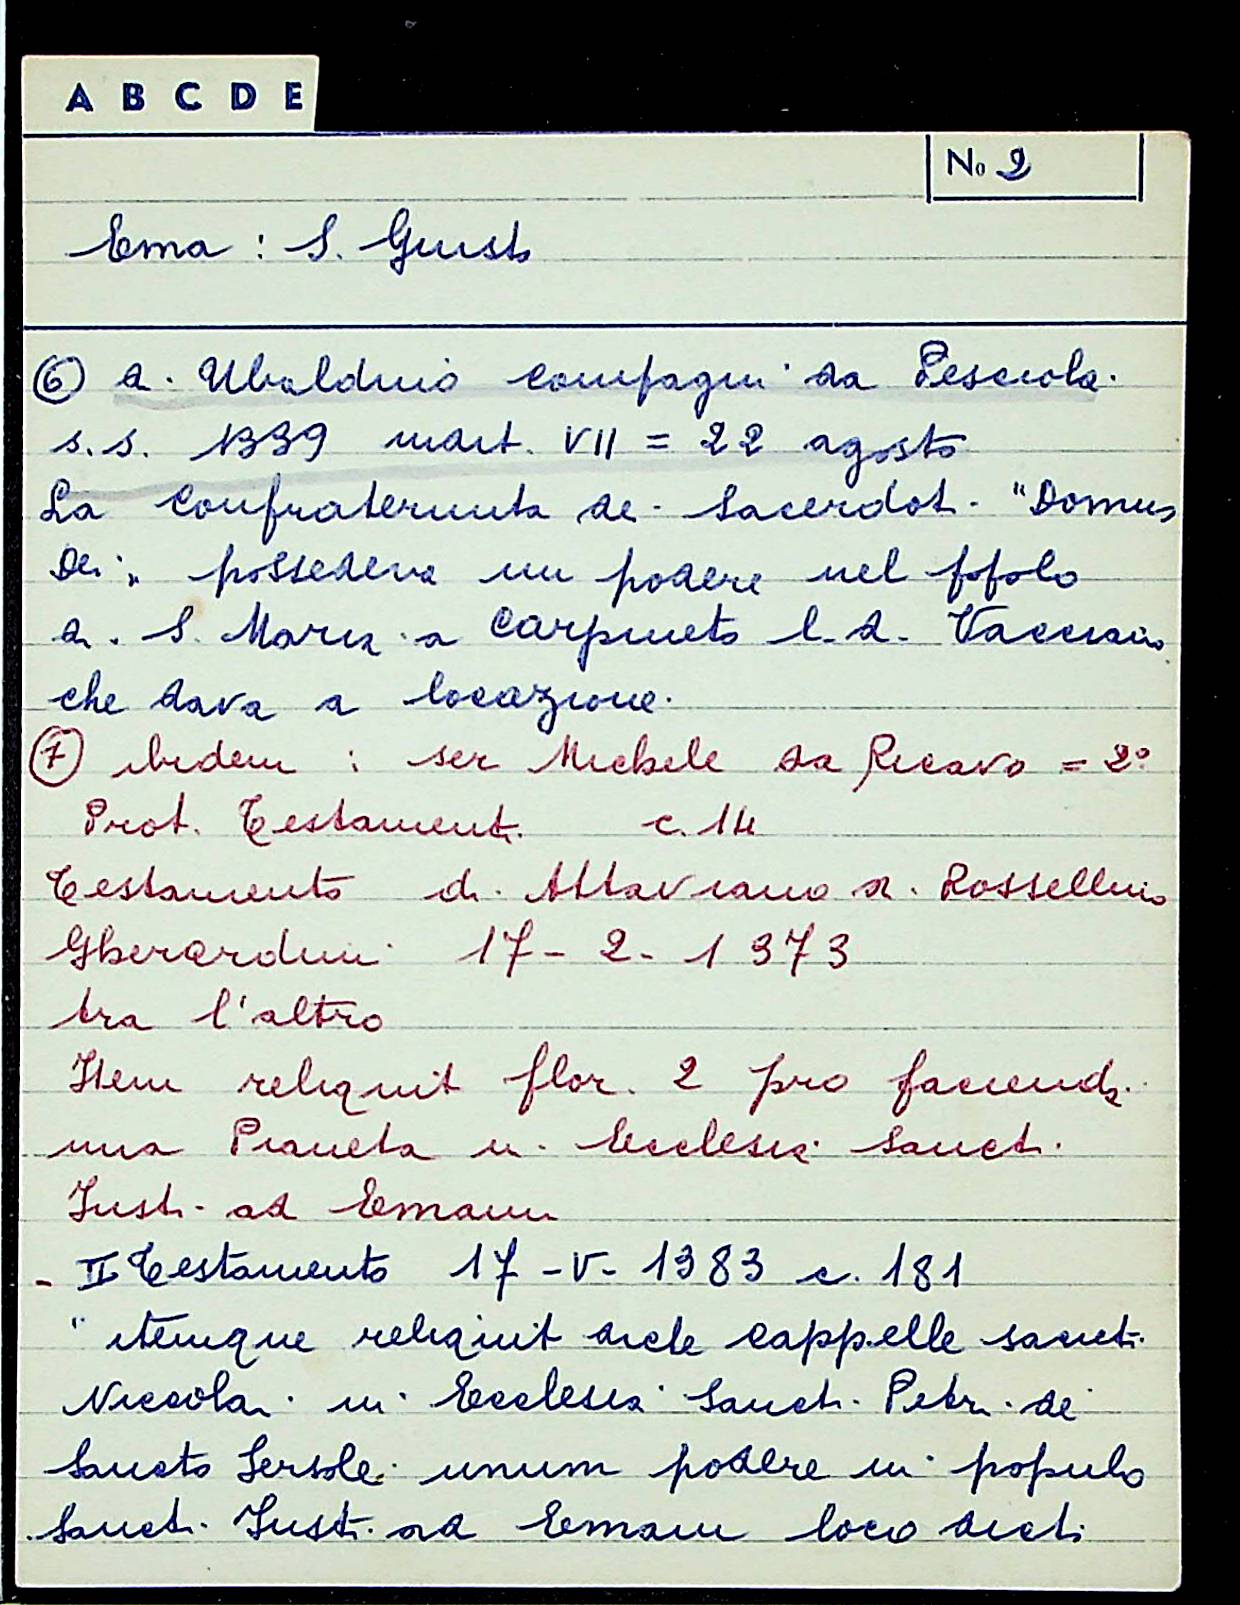 A B C D E
No 2
Ema : S. Giusto
⑥ d. Ubaldino compagni da Pesciola.
s.s. 1339 mart. VII = 22 agosto
La confraternita dei Sacerdoti "Domus
Dei" possedeva un podere nel popolo
di S. Maria a Carpineto l.d. Vacciaio
che dava a locazione.
⑦ ibidem : ser Michele da Ricavo = 2º
Prot. Testamenti c. 14
Testamento di Attaviano di Rossellino
Gherardini 17-2-1373
tra l'altro
Item reliquit flor. 2 pro facienda
una Pianeta in Ecclesia Sancti
Justi ad Emam
- II Testamento 17-V-1383 c. 181
"itemque reliquit dicte cappelle sancti
Niccolai in Ecclesia Sancti Petri de
Sancto Sersole unum podere in populo
Sancti Justi ad Emam loco dicti